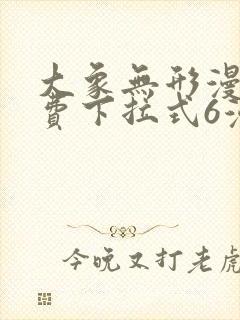 大象無形漫
費下拉式6漫
今晚又打老虎